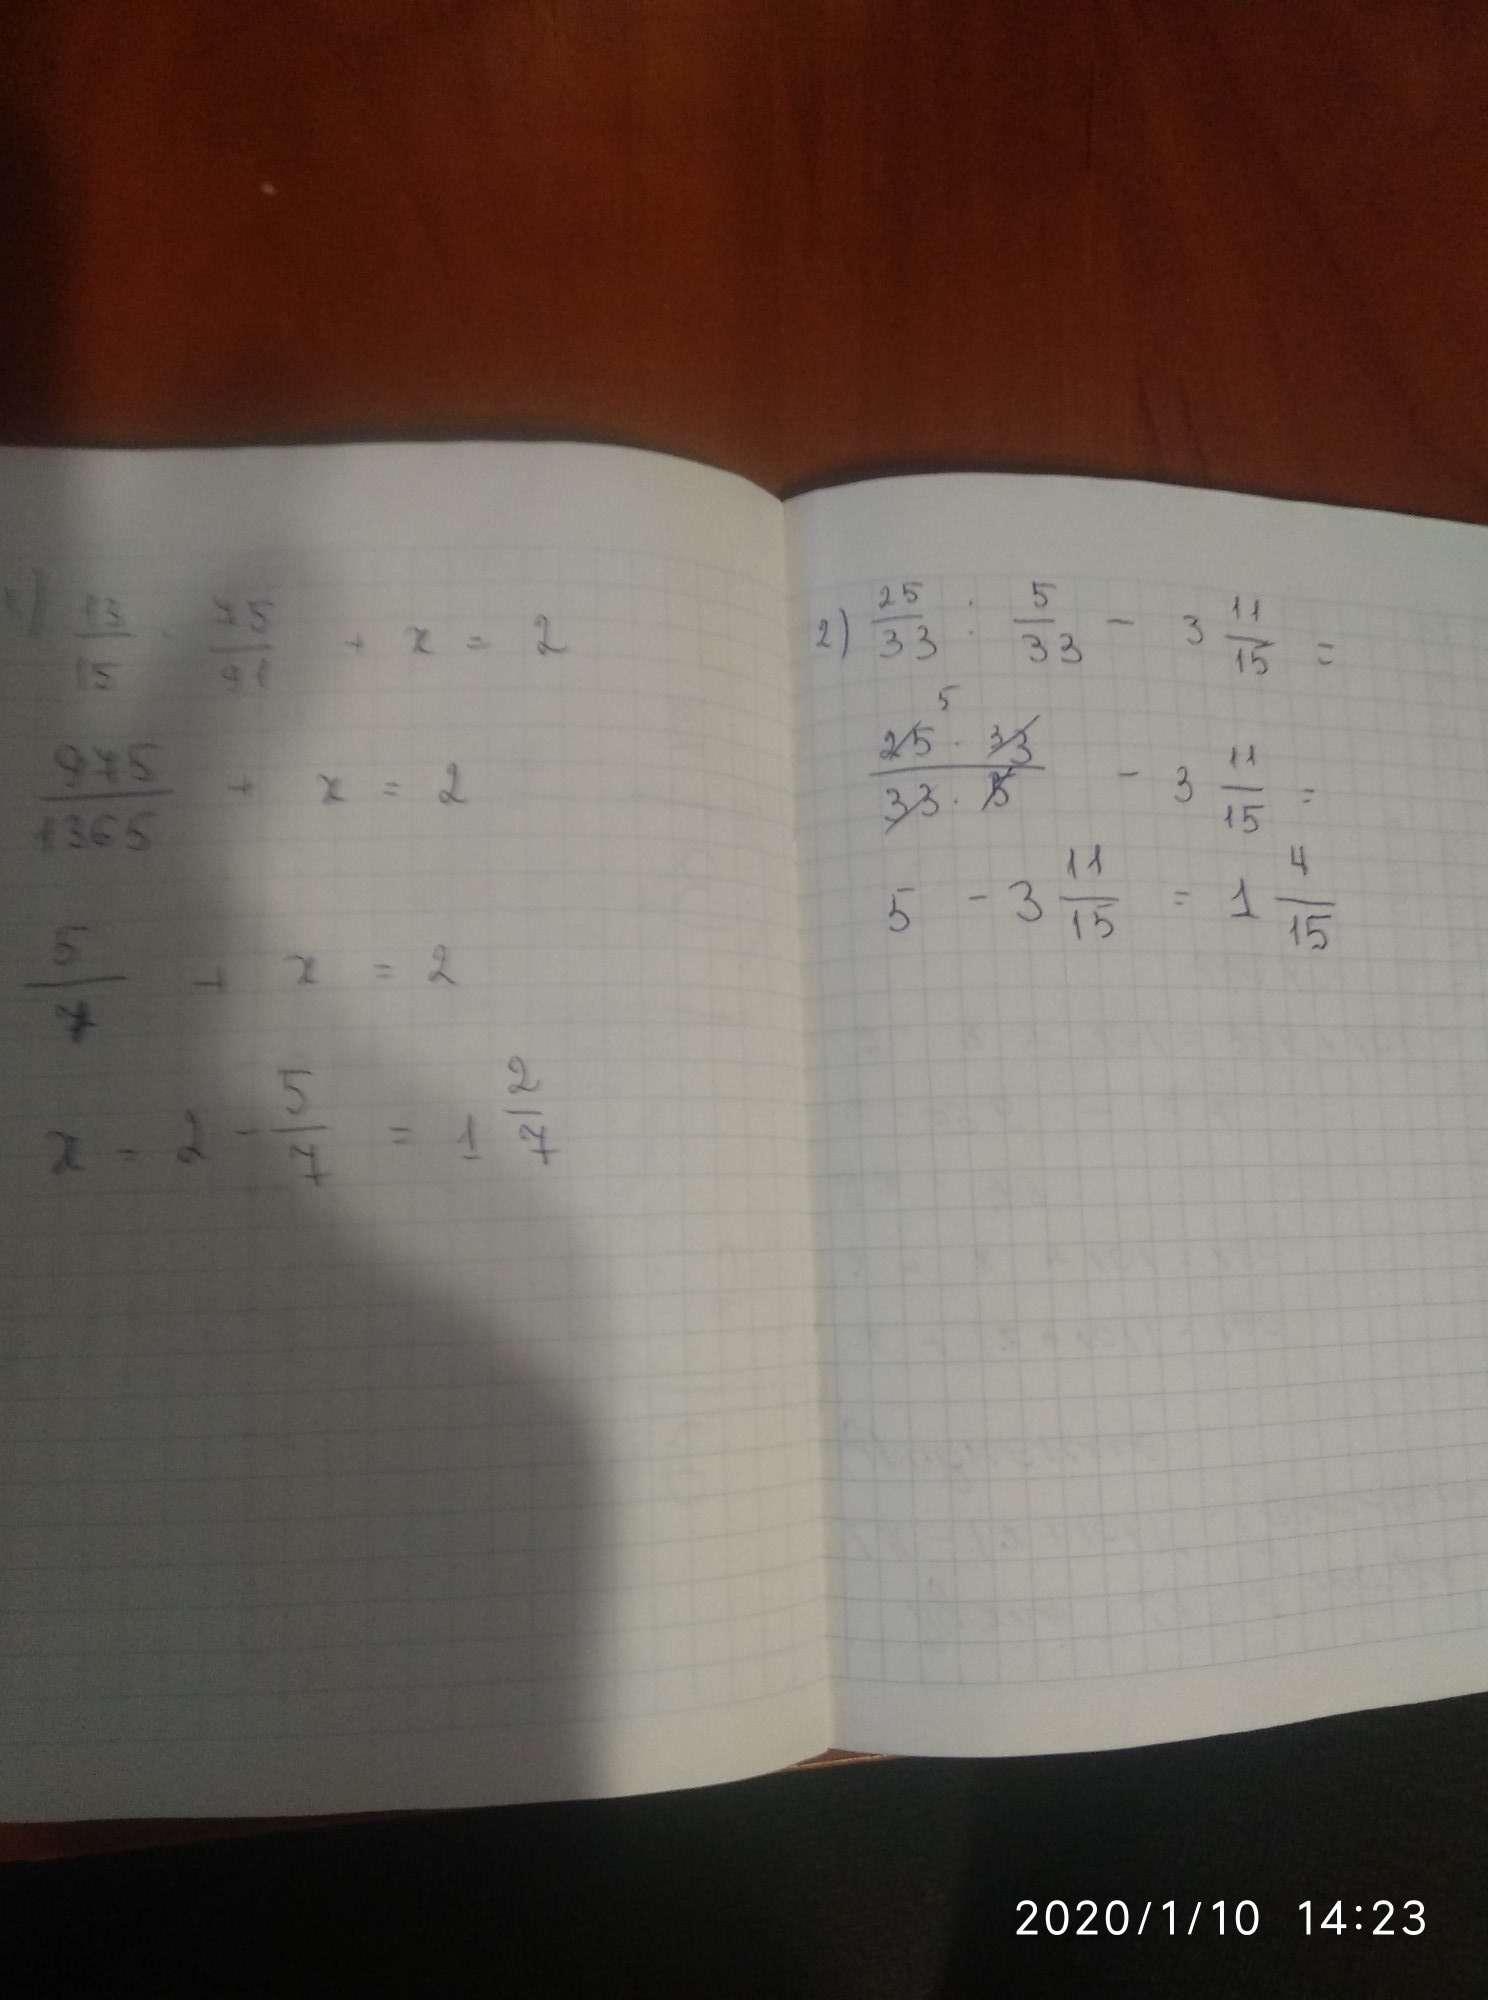 1) 13/15 · 75/91 + x = 2
975/1365 + x = 2
5/7 + x = 2
x = 2 - 5/7 = 1 2/7
2) 25/33 : 5/33 - 3 11/15 =
5
25 · 33/33 · 5 - 3 11/15 =
5 - 3 11/15 = 1 4/15
2020/1/10 14:23